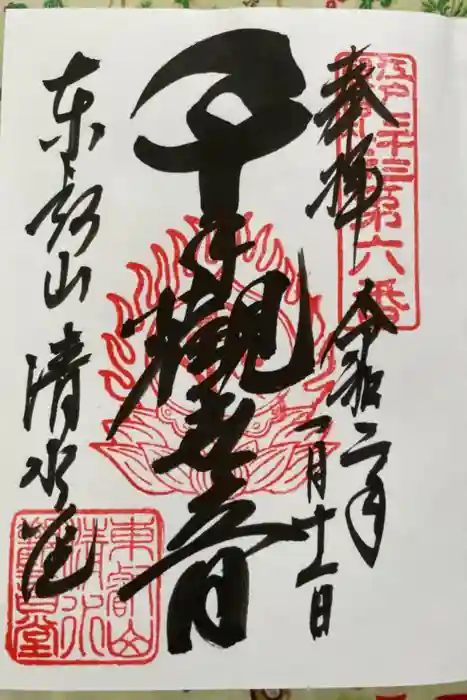 奉拝 令和二年
一月十一日
千手観世音
東叡山 清水堂
江戸三十三
観音第六番
東叡山
清水
観音堂